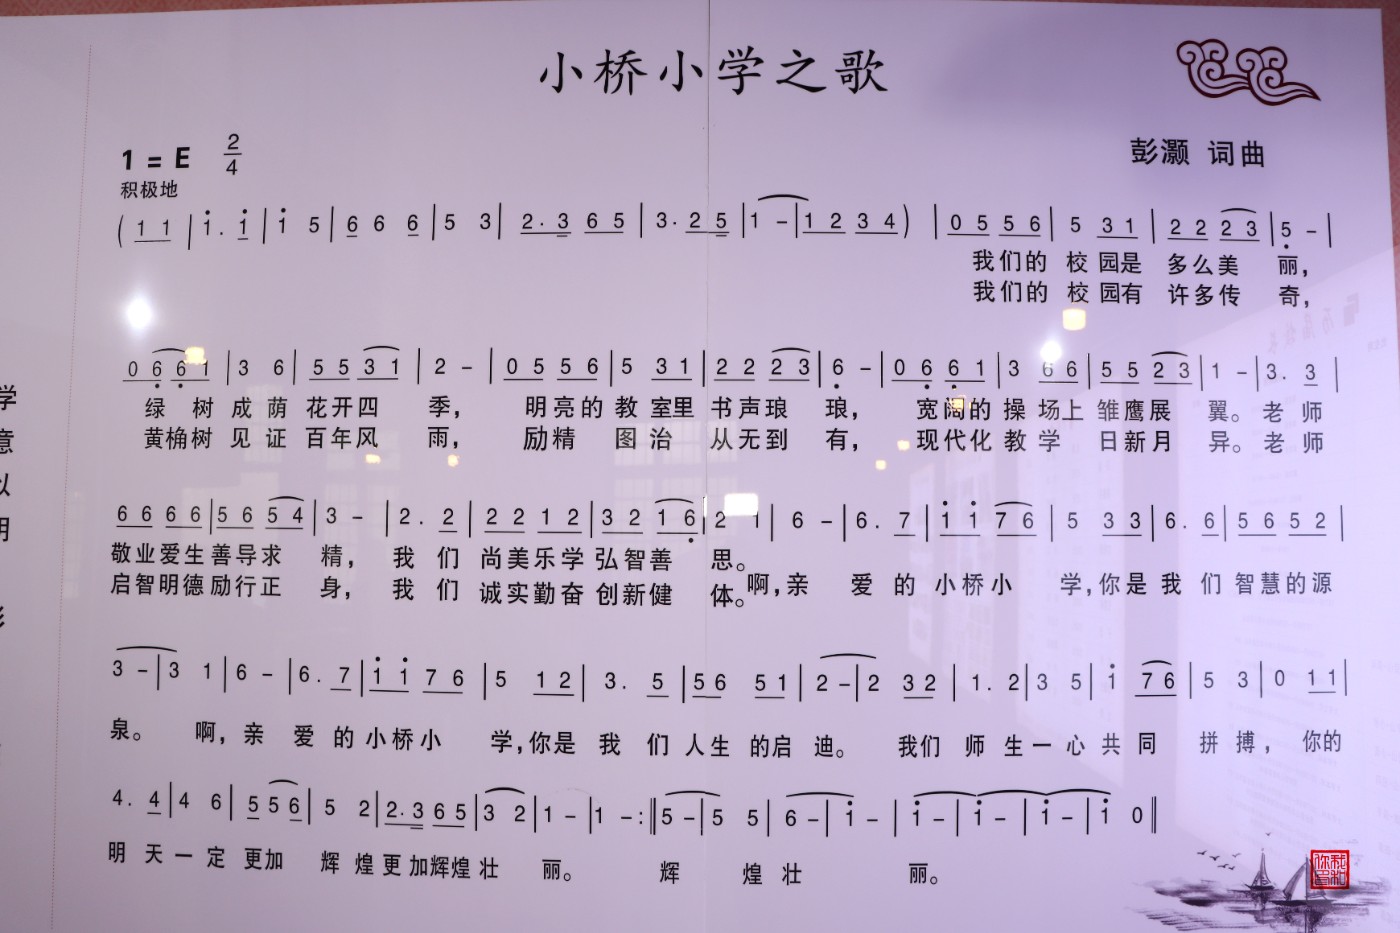 小桥小学之歌
1 = E 2/4
彭灏 词曲
积极地
( 1 1 | 1 . 1 | 1 5 | 6 6 6 | 5 3 | 2 . 3 6 5 | 3 . 2 5 | 1 - | 1 2 3 4 ) | 0 5 5 6 | 5 3 1 | 2 2 2 3 | 5 - |
我们的 校园是 多么美 丽，
我们的 校园有 许多传 奇，
0 6 6 1 | 3 6 | 5 5 3 1 | 2 - | 0 5 5 6 | 5 3 1 | 2 2 2 3 | 6 - | 0 6 6 1 | 3 6 6 | 5 5 2 3 | 1 - | 3 . 3 |
绿 树 成 荫 花开四 季， 明亮的 教 室里 书声琅 琅， 宽阔的 操 场上 雏鹰展 翼。老 师
黄桷树 见 证 百年风 雨， 励精 图 治 从无到 有， 现代化 教 学 日新月 异。老 师
6 6 6 6 | 5 6 5 4 | 3 - | 2 . 2 | 2 2 1 2 | 3 2 1 6 | 2 1 | 6 - | 6 . 7 | 1 1 7 6 | 5 3 3 | 6 . 6 | 5 6 5 2 |
敬业爱生 善导求 精， 我 们 尚美乐学 弘智善 思。
启智明德 励行正 身， 我 们 诚实勤奋 创新健 体。啊，亲 爱 的 小桥小 学，你是 我 们 智慧的源
3 - | 3 1 | 6 - | 6 . 7 | 1 1 7 6 | 5 1 2 | 3 . 5 | 5 6 5 1 | 2 - | 2 3 2 | 1 . 2 | 3 5 | 1 7 6 | 5 3 | 0 1 1 |
泉。 啊，亲 爱 的 小桥小 学，你是 我 们 人生 的启 迪。 我们 师 生 一 心 共 同 拼 搏， 你的
4 . 4 | 4 6 | 5 5 6 | 5 2 | 2 . 3 6 5 | 3 2 | 1 - | 1 - :‖ 5 - | 5 5 | 6 - | 1 - | 1 - | 1 - | 1 - | 1 0 ‖
明 天 一 定 更加 辉 煌 更 加辉煌 壮 丽。 辉 煌 壮 丽。
学
意
以
明